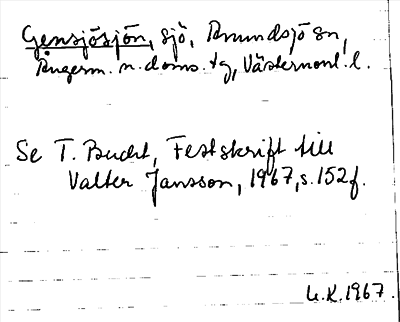 Gensjösjön, sjö, Anundsjö sn,
Ångerm. n. doms. tg, Västernorrl. l.
Se T. Bucht, Festskrift till
Valter Jansson, 1967, s. 152f.
U.K. 1967.